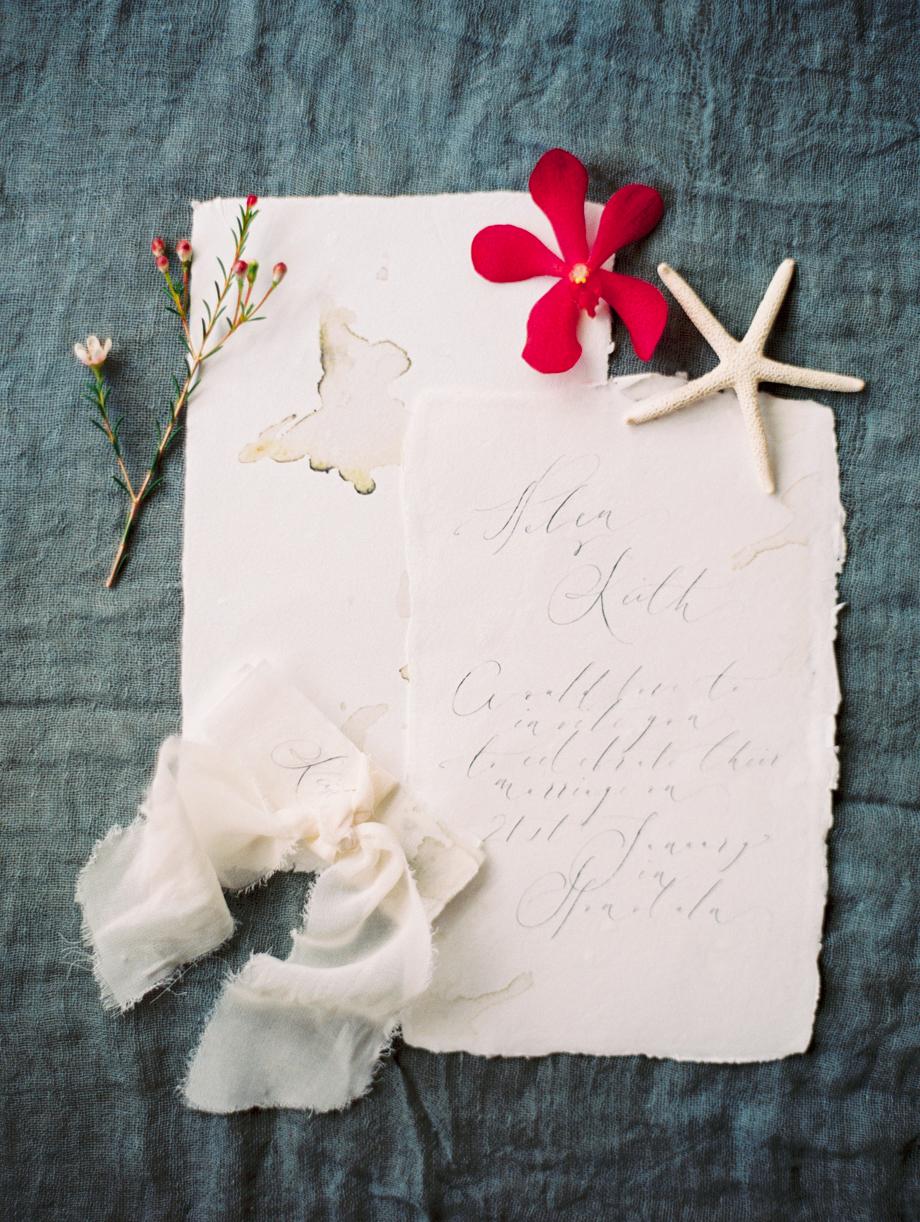 Helen
&
Keith
Would love to
invite you
to celebrate their
marriage on
21st January
in
Honolulu